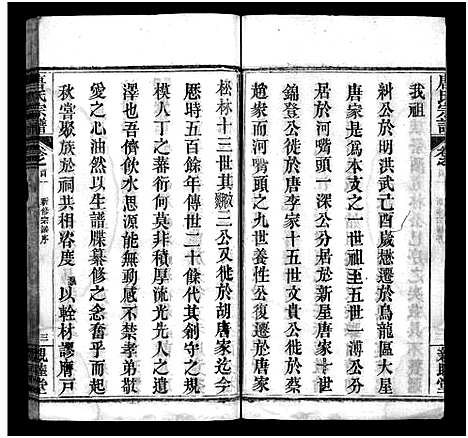 我祖
松公於明洪武己酉歲懋遷於烏龍區大屋
唐家是爲本支之一世祖至五世一溥公分
居於河嘴頭一深公分居於新屋唐家六世
錦登公徙於唐李家十五世文貴公徙於蔡
家於河嘴頭之九世養性公復遷於唐家
松林十三世其三公又徙於胡唐家迄今
歷時五百餘年傳世二十餘代其創守之規
模人丁之蕃衍何莫非積厚流光先人之遺
澤也吾儕飲水思源能無動感不禁孝弟敬
愛之心油然以生譜牒纂修之念奮乎又
秋嘗聚族於祠共相咨度 以輇材謬膺戶
唐氏宗譜
卷之首
新修宗譜序
三
親睦堂